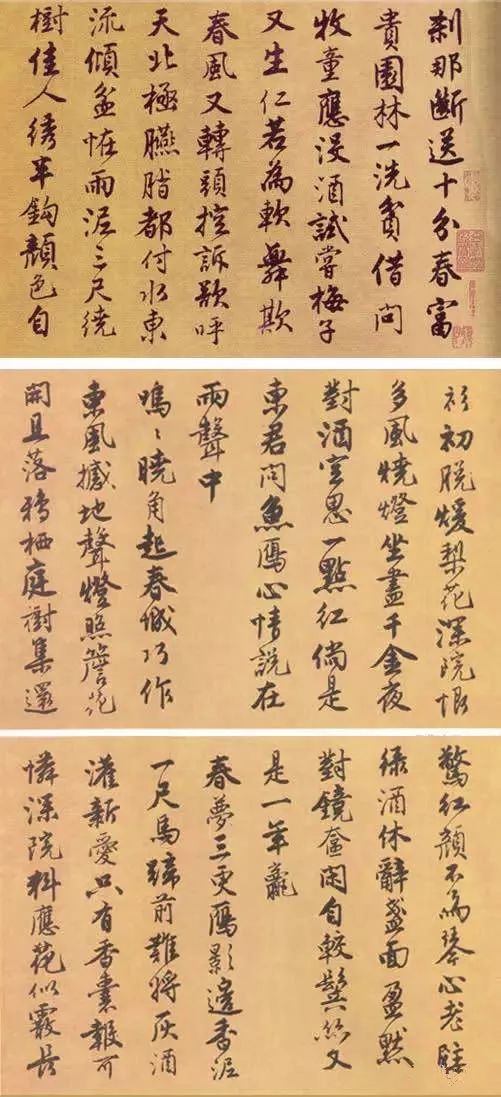 刹那斷送十分春富
貴園林一洗貧借問
牧童應没酒試嘗梅子
又生仁若為軟舞欺
春風又轉頭控訴欲呼
天北極臙脂都付水東
流傾盆怪雨泥三尺繞
樹佳人繡半鉤顏色自
衫初脱煖梨花深院恨
多風燒燈坐盡千金夜
對酒空思一點紅倘是
東君問魚鴈心情說在
雨聲中
嗚〻曉角起春城巧作
東風撼地聲燈照簷花
開且落鴉栖庭樹集還
驚紅顏不為琴心老
緑酒休辭盞面盈默
對鏡奩閑自較鬢絲又
是一年虧
春夢三更鴈影邊香泥
一尺馬蹄前難將灰酒
灌新愛只有香囊報可
憐深院料應花似霰長